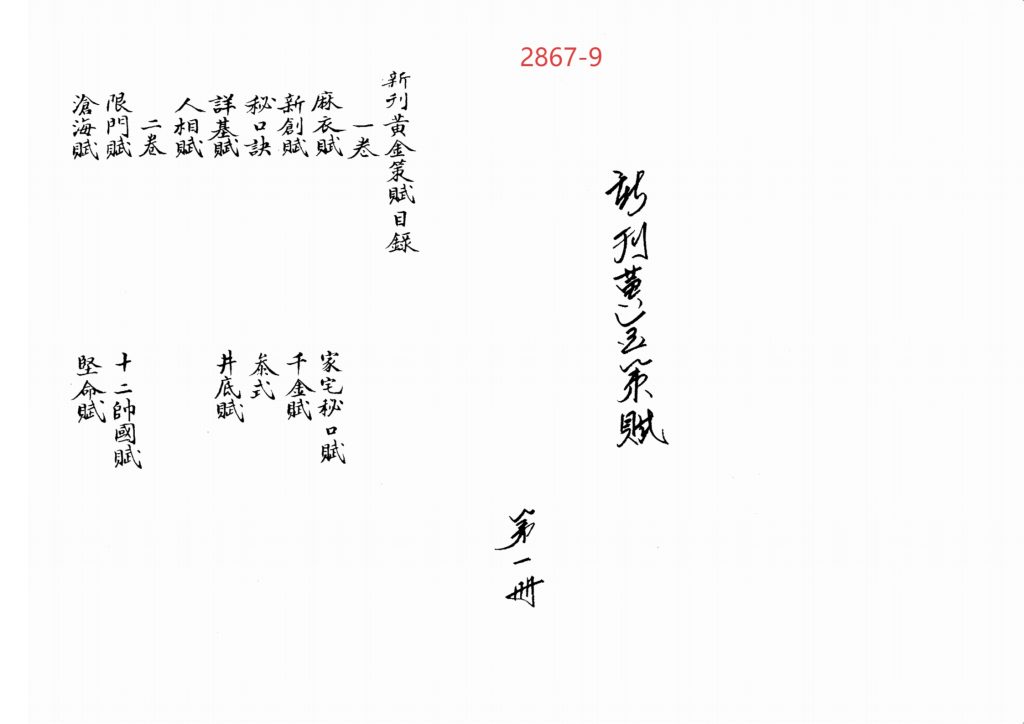 2867-9
新刊黃金策賦
第一冊
新刊黃金策賦目錄
一卷
麻衣賦
家宅秘口賦
新創賦
千金賦
秘口訣
叅式
詳基賦
井底賦
人相賦
二卷
限門賦
十二帥國賦
滄海賦
堅命賦